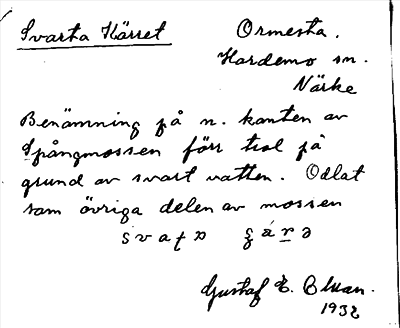 Svarta Kärret Ormesta.
Hardemo sn.
Närke
Benämning på n. kanten av
Spångmossen förr trol på
grund av svart vatten. Odlat
som övriga delen av mossen
Gustaf E.
1932